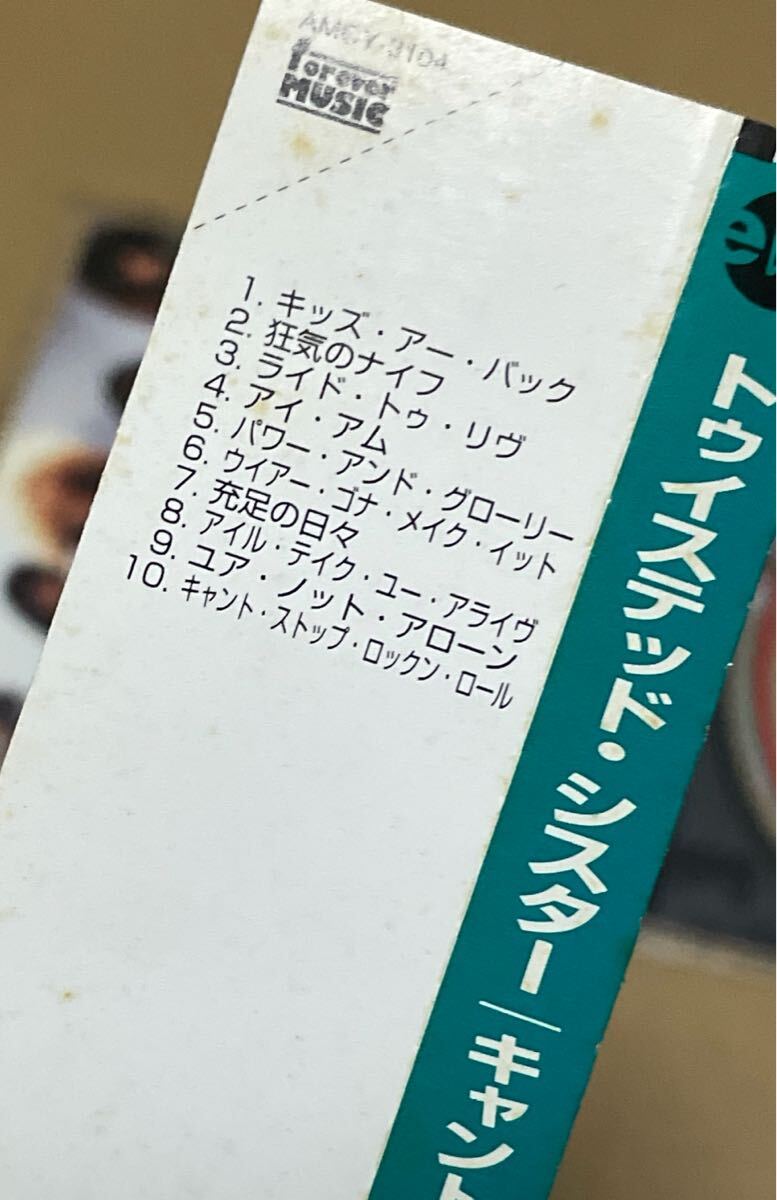 AMCY-3104
forever
MUSIC
1. キッズ・アー・バック
2. 狂気のナイフ
3. ライド・トゥ・リヴ
4. アイ・アム
5. パワー・アンド・グローリー
6. ウイアー・ゴナ・メイク・イット
7. 充足の日々
8. アイル・テイク・ユー・アライヴ
9. ユア・ノット・アローン
10. キャント・ストップ・ロックン・ロール
トゥイステッド・シスター/キャント